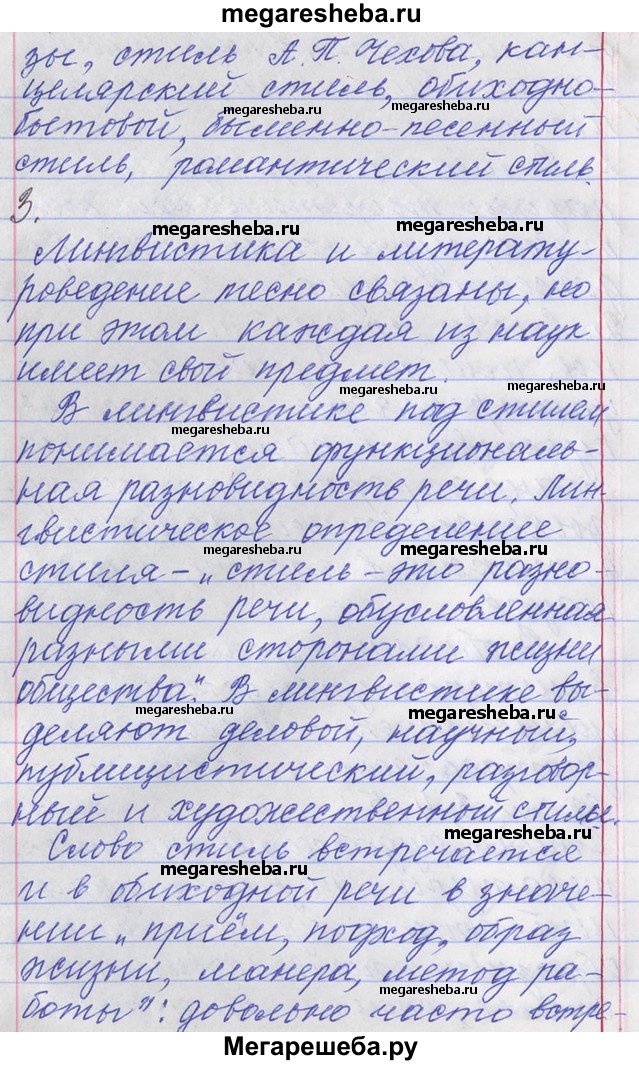 megaresheba.ru
зы, стиль А.П. Чехова, кан-
целярский стиль, обиходно-
megaresheba.ru
megaresheba.ru
бытовой, былинно-песенный
стиль, романтический стиль.
3.
megaresheba.ru
megaresheba.ru
Лингвистика и литерату-
роведение тесно связаны, но
при этом каждая из наук
имеет свой предмет.
megaresheba.ru
megaresheba.ru
В лингвистике под стилем
megaresheba.ru
понимается функциональ-
ная разновидность речи. Лин-
гвистическое определение
megaresheba.ru
megaresheba.ru
стиля – „стиль – это разно-
видность речи, обусловленная
разными сторонами жизни
общества". В лингвистике вы-
megaresheba.ru
megaresheba.ru
деляют деловой, научный,
публицистический, разговор-
ный и художественный стиль.
megaresheba.ru
Слово стиль встречается
megaresheba.ru
и в обиходной речи в значе-
нии „приём, подход, образ
жизни, манера, метод ра-
megaresheba.ru
megaresheba.ru
боты": довольно часто встре-
Мегарешеба.ру